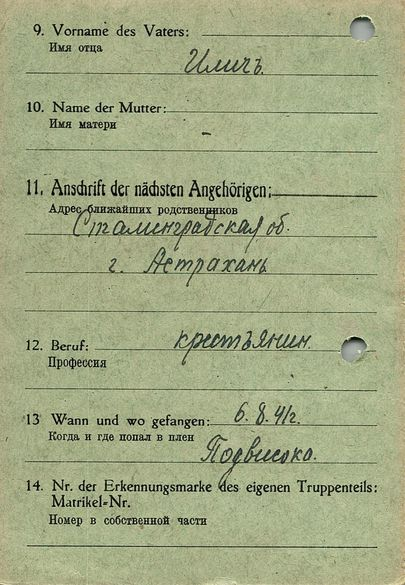 9. Vorname des Vaters:
Имя отца
Иличъ.
10. Name der Mutter:
Имя матери
-
11. Anschrift der nächsten Angehörigen:
Адрес ближайших родственников
Сталинградская об.
г. Астрахань
12. Beruf: крестьянин.
Профессия
13 Wann und wo gefangen: 6.8.41г.
Когда и где попал в плен
Подвисоко.
14. Nr. der Erkennungsmarke des eigenen Truppenteils:
Matrikel-Nr.
Номер в собственной части